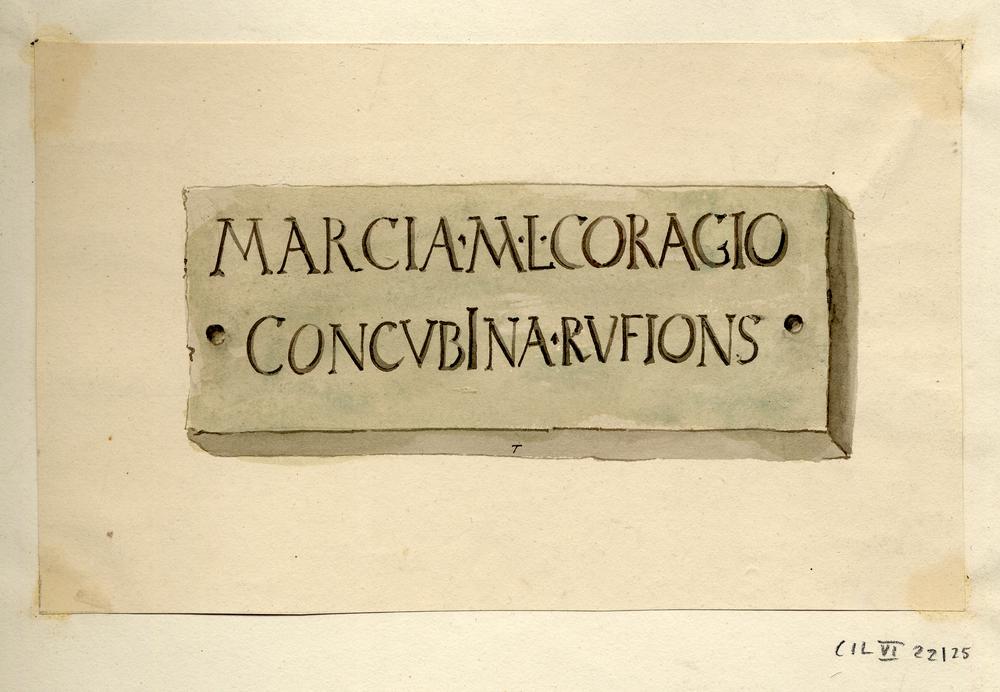 MARCIA·M·L·CORAGIO
CONCVBINA·RVFIONS
T
CIL VI 22125